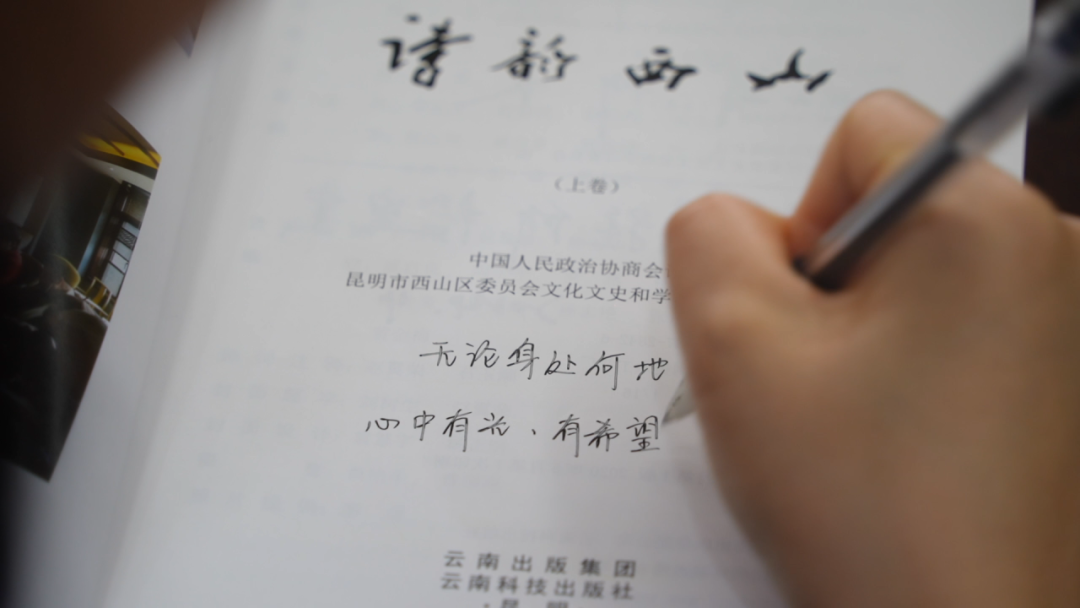 西山
（上卷）
中国人民政治协商会
昆明市西山区委员会文化文史和学
无论身处何地
心中有光、有希望
云南出版集团
云南科技出版社
· 昆明